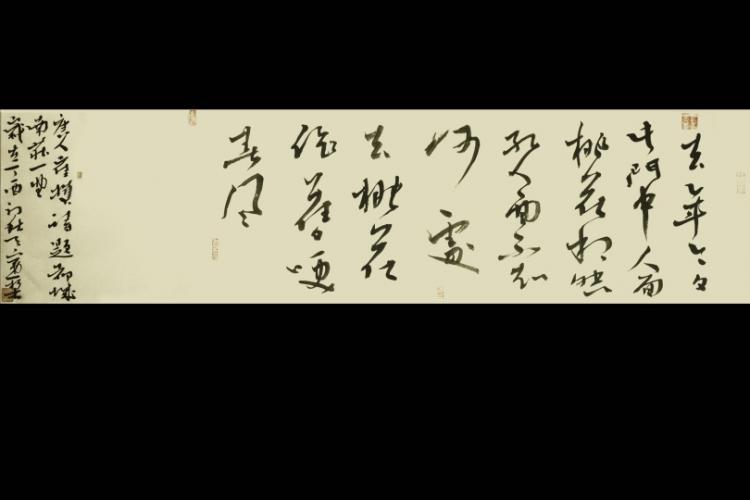 去年今日
此門中人面
桃花相映
紅人面不知
何處
去桃花
依舊咲
春風
唐人崔護詩題都城
南莊一
歲在丁酉初秋